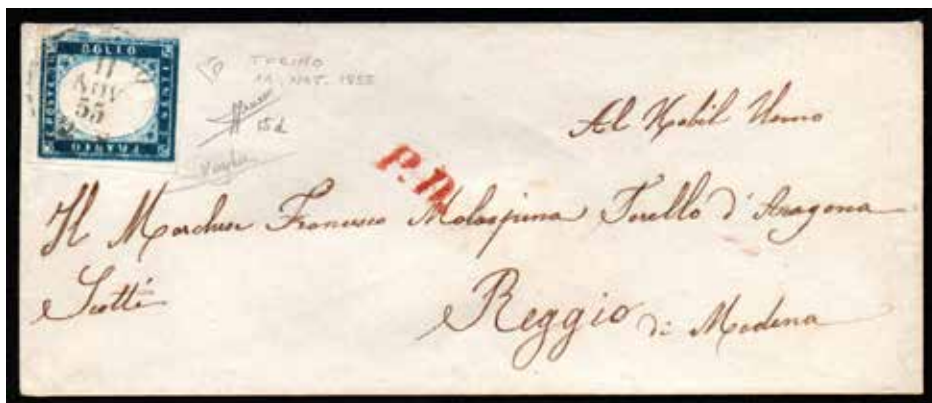 BOLLO
FRANCO
11
NOV
55
TORINO
11. NOV. 1855
15d
P.D.
Al Nobil Uomo
Il Marchese Francesco Malaspina Torello d'Aragona
Scotti
Reggio di Modena